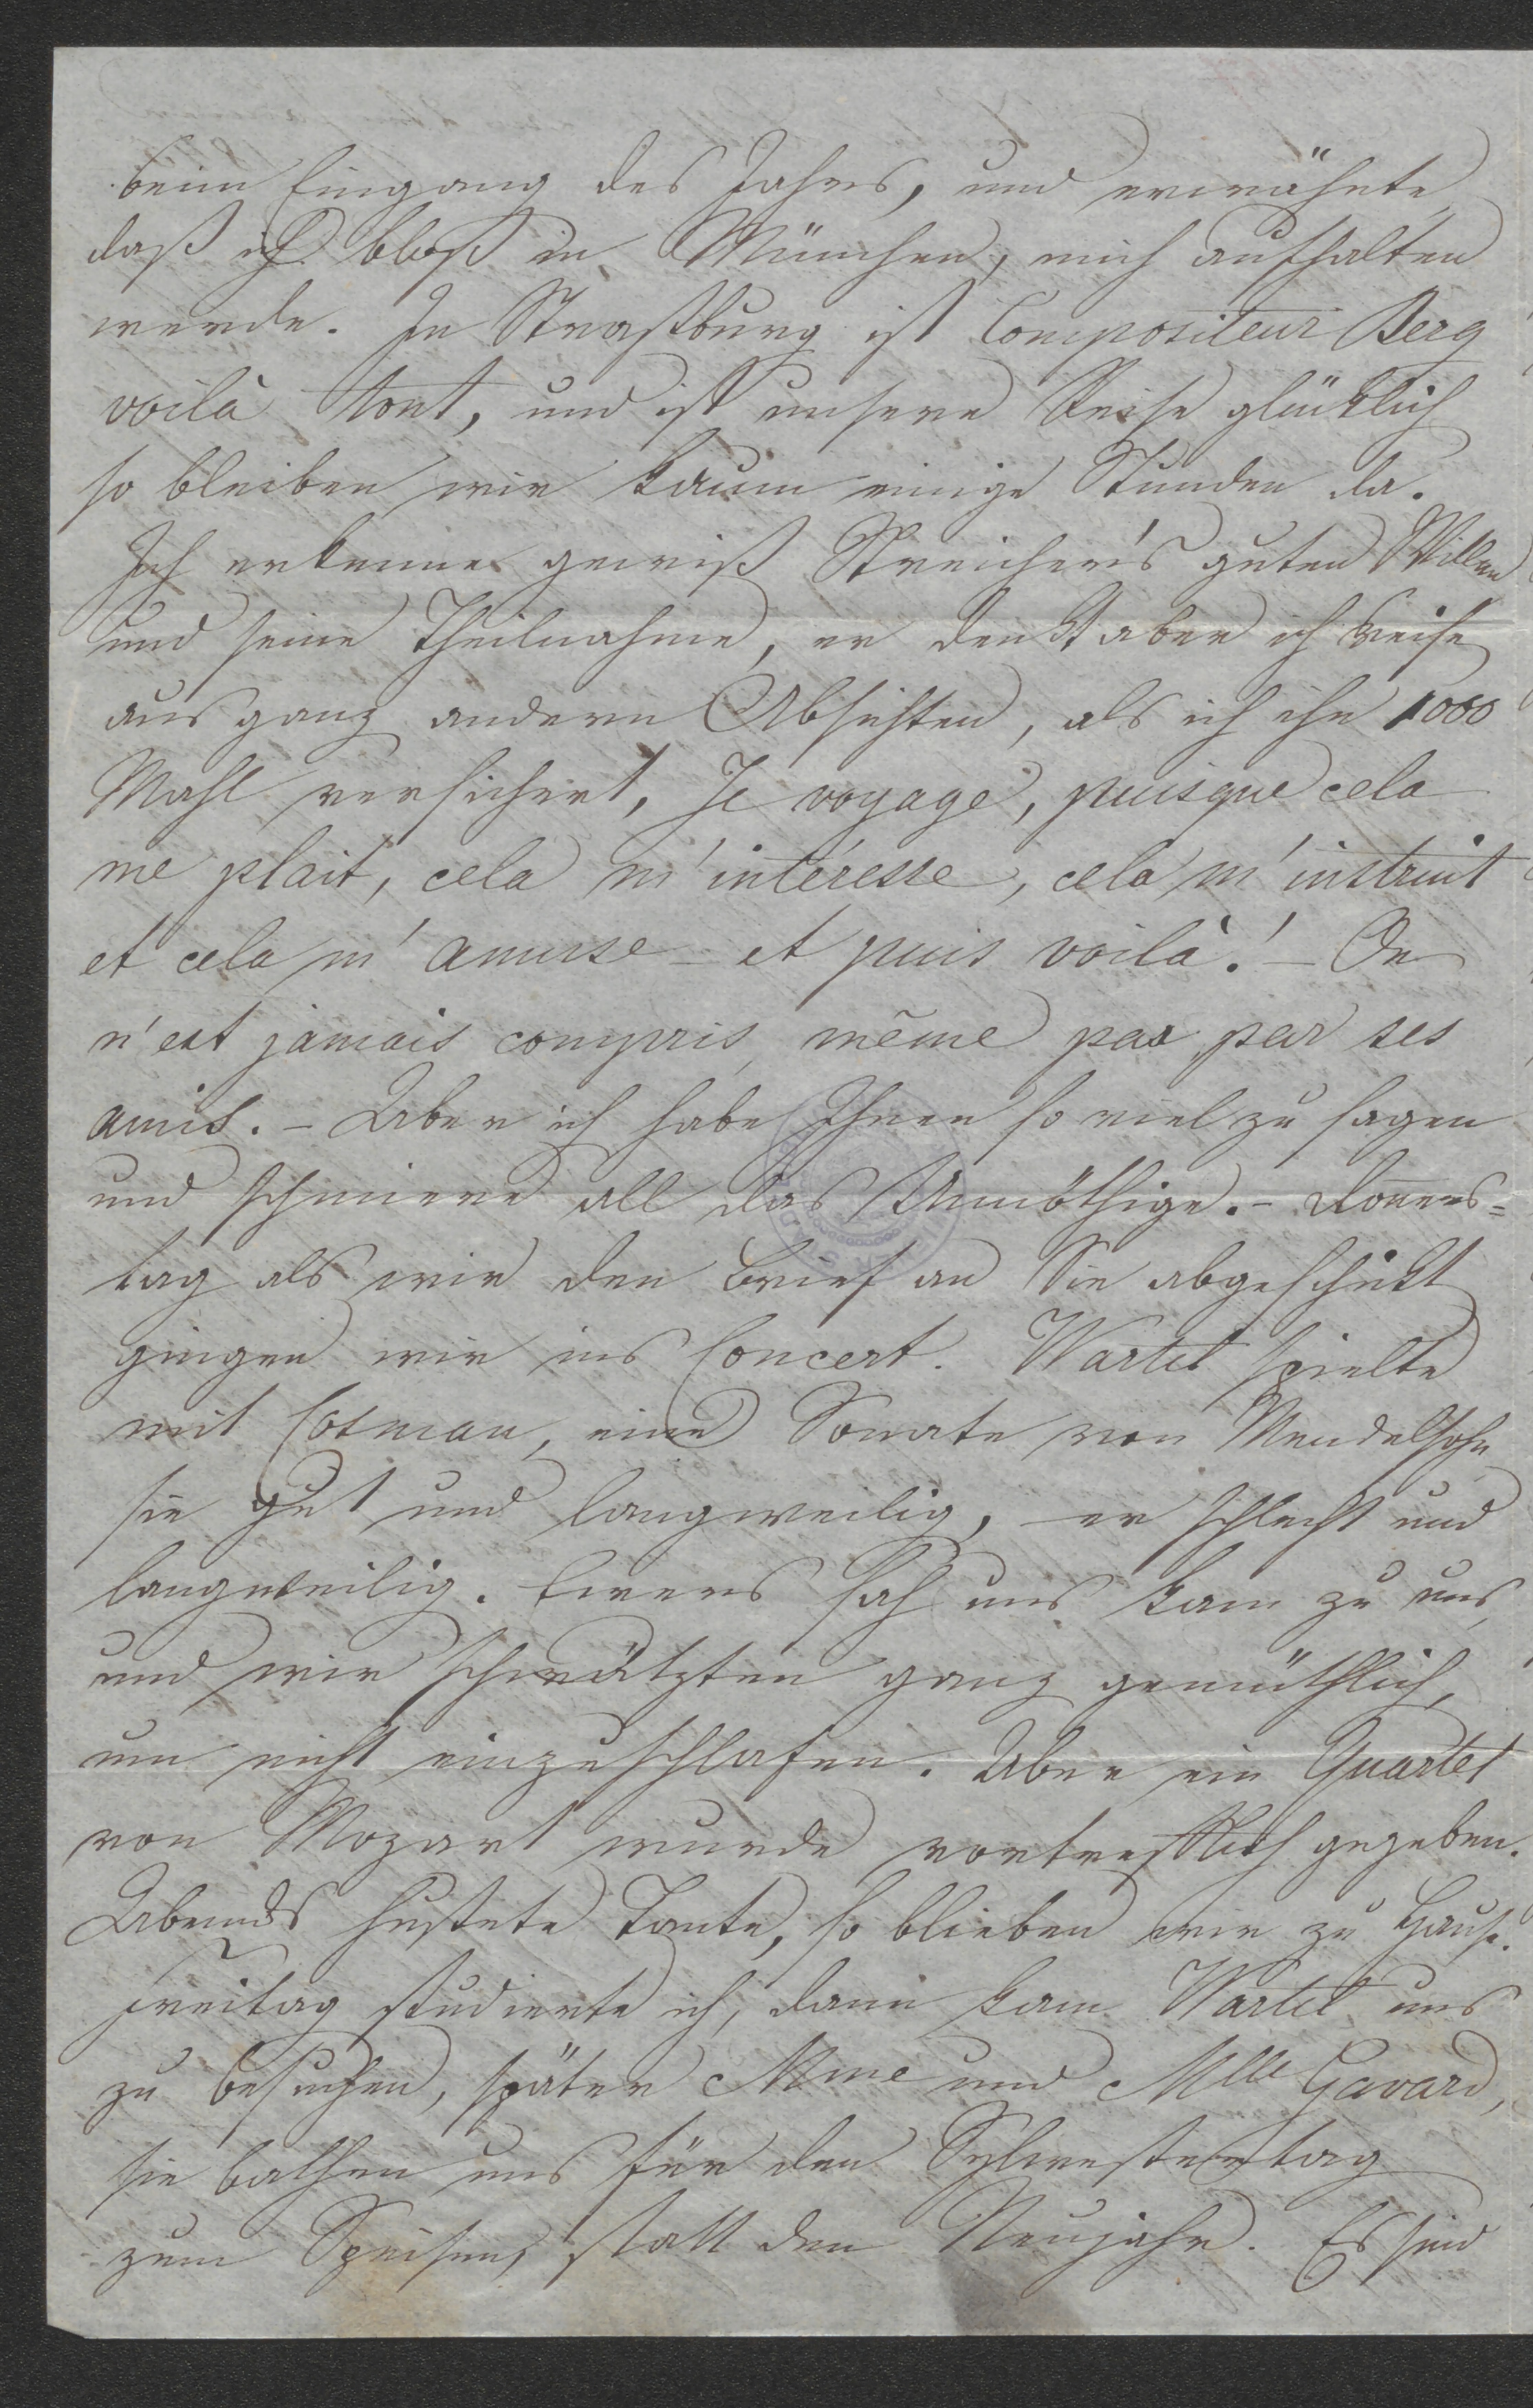 beim Eingang des Jahrs, und erwähnte
daß ich bloß in München, mich aufhalten
werde. In Straßburg ist Compositeur Berg
voilà tout, und ist unsere Reise glücklich
so bleiben wir kaum einige Stunden da.
Ich erkenne gewiß Streicher's guten Willen
und seine Theilnahme, er denkt aber ich reise
aus ganz andern Absichten, als ich ihn 1000
Mahl versichert, Je voyage, puisque cela
me plait, cela m'intéresse, cela m'instruit
et cela m'amuse – et puis voilà! – On
n'est jamais compris, même pas par ses
amis. – Aber ich habe Ihnen so viel zu sagen
und schmiere all das Unnöthige. – Doners=
tag als wir den Brief an Sie abgeschickt
gingen wir ins Concert. Wartel spielte
mit Cosman, eine Sonate von Mendelsohn
sie gut und langweilig, er schlecht und
langweilig. Evers sah uns kam zu uns,
und wir schwätzten ganz gemüthlich,
um nicht einzuschlafen. Aber ein Quartet
von Mozart wurde vortrefflich gegeben.
Abends hustete Tante, so blieben wir zu Hause.
Freitag studierte ich, dann kam Wartel uns
zu besuchen, später Mme und Mlle Gavard,
sie bathen uns für den Sylvestertag
zum Speisen, statt den Neujahr. Es sind